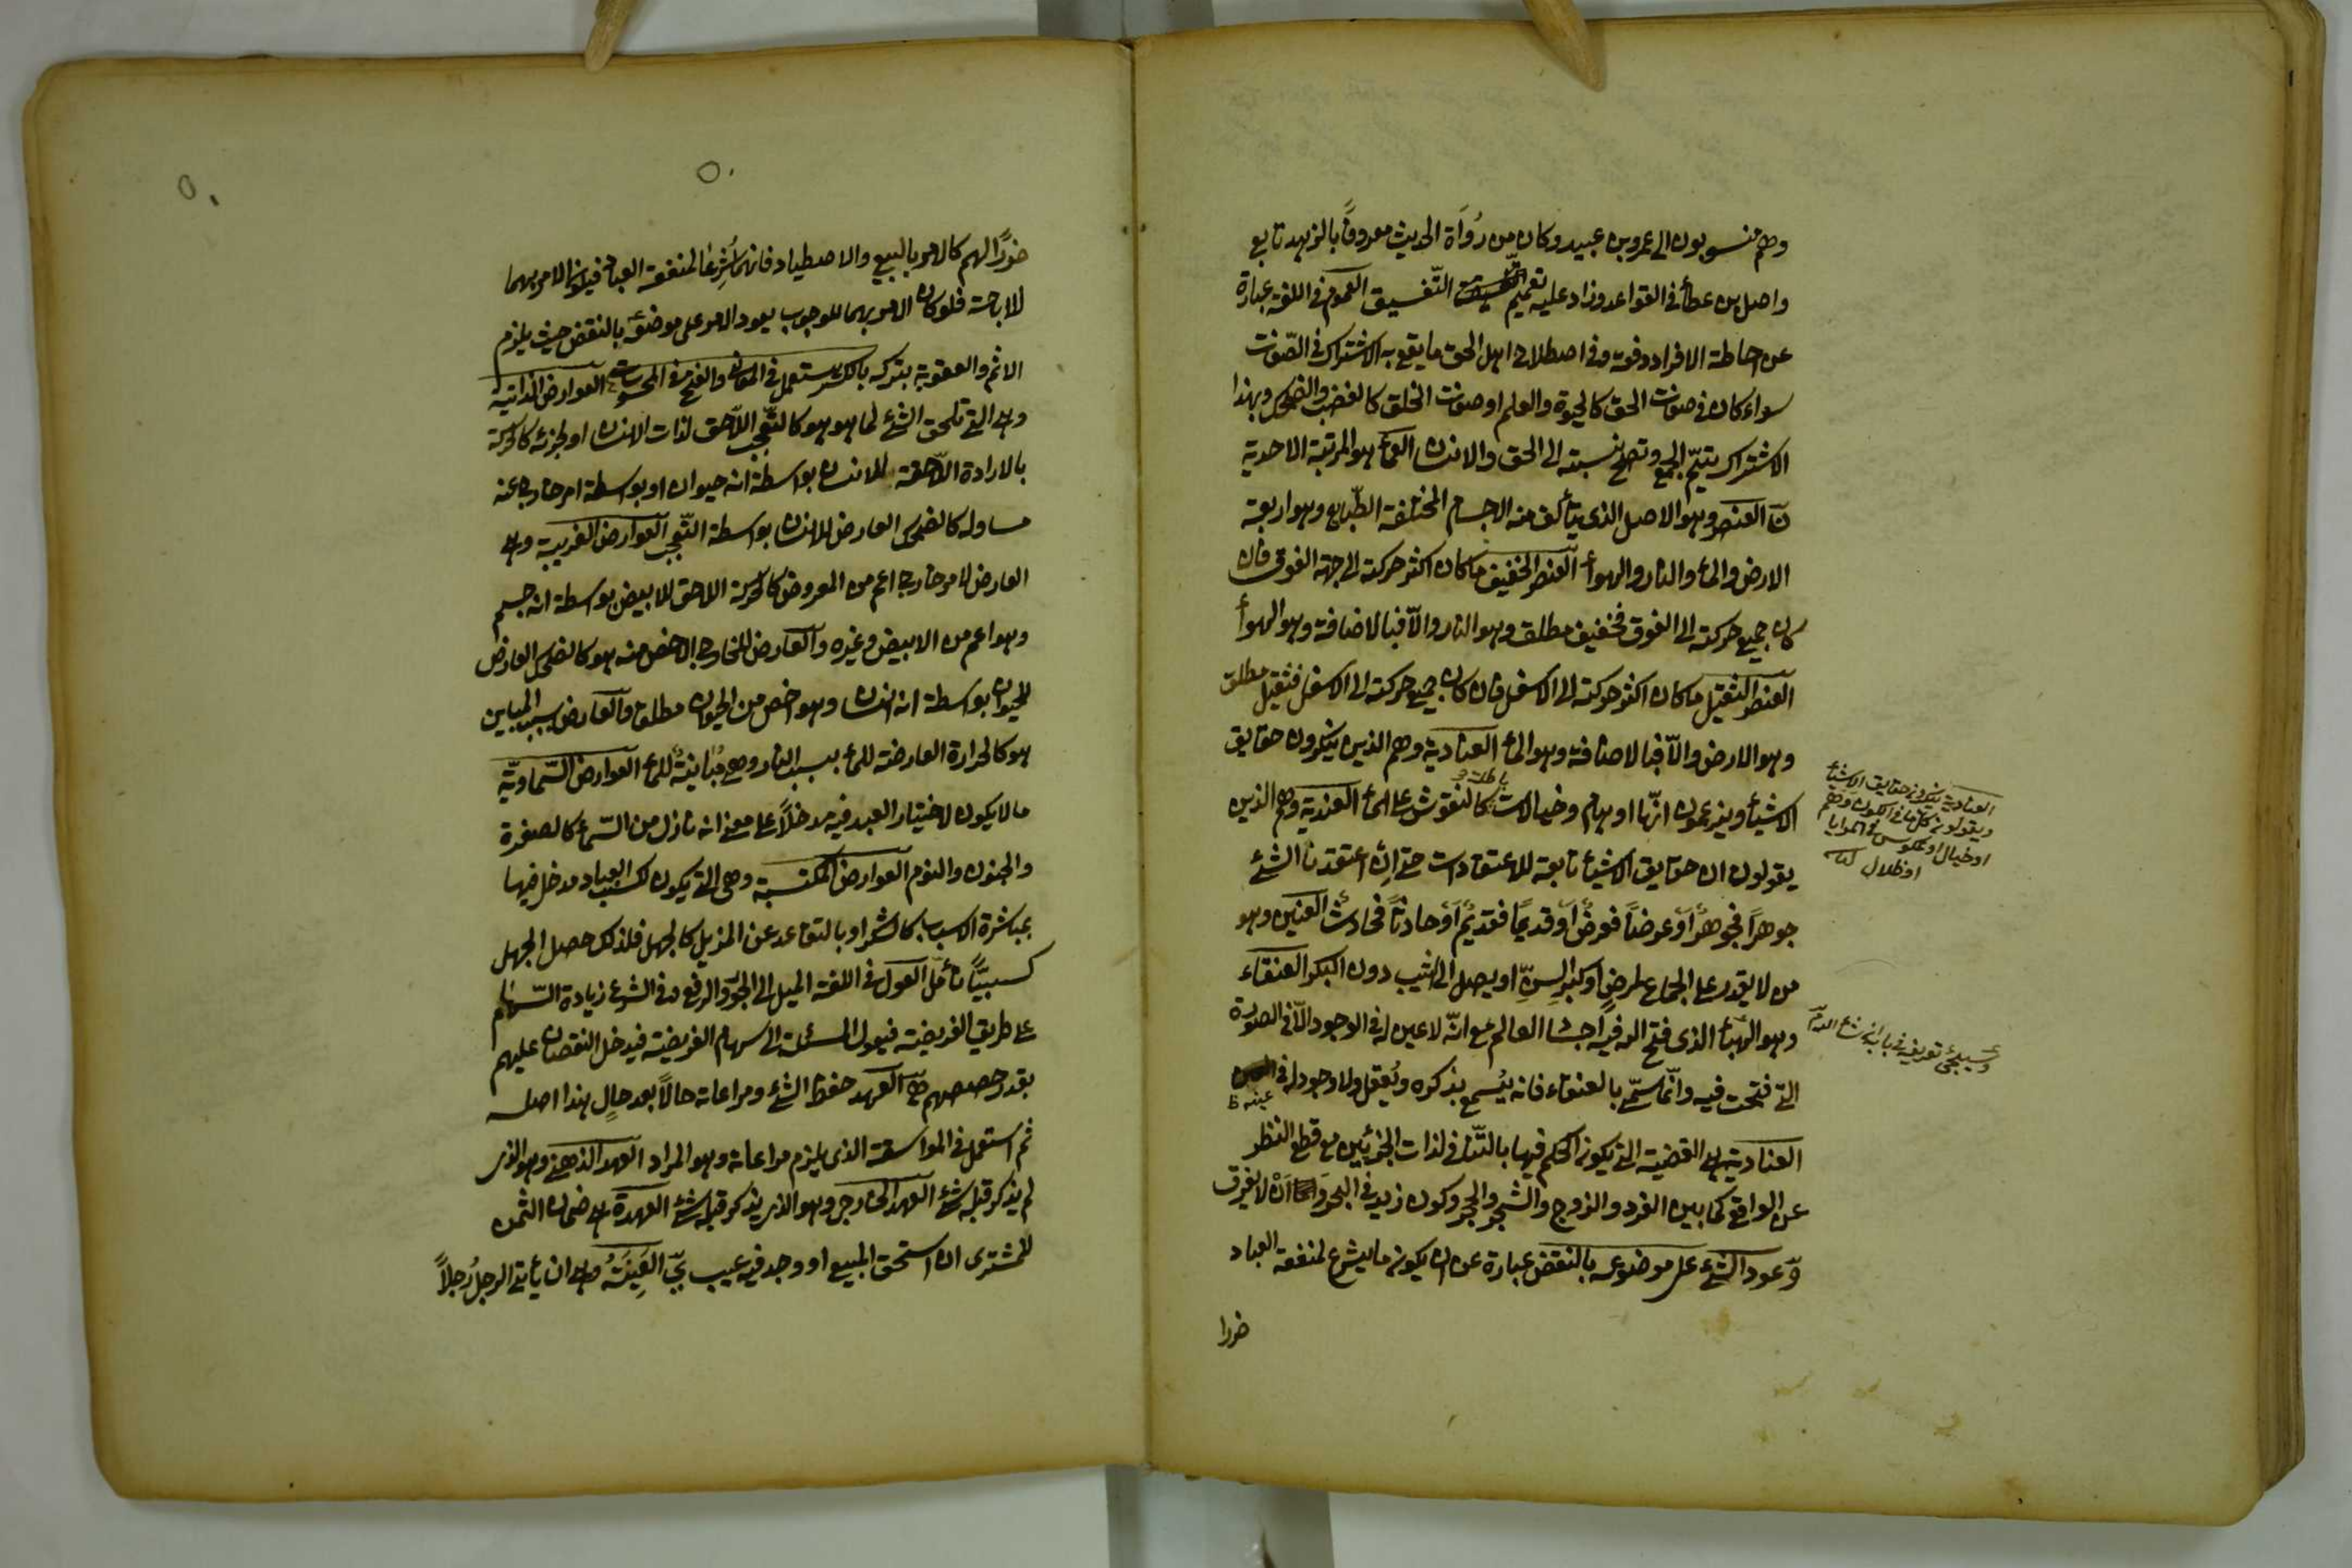 وهم منسوبون الى عمرو بن عبيد وكان من رُوَاة الحديث معروفاً بالزهد تابع
واصل بن عطأ في القواعد وزاد عليه تعميم التّفسيق العموم في اللغة عبارة
عن احاطة الافراد دفعة وفى اصطلاح اهل الحق ما يقع به الاشتراك في الصّفات
سواء كان في صفات الحق كالحيوة والعلم او صفات الخلق كالغضب والضحك وبهذا
الاشتراك يتمّ الجمع وتصح نسبته الى الحق والانسان العمأ هو المرتبة الاحدية
نَ العنصر وهو الاصل الذى يتألف منه الاجسام المختلفة الطّبايع وهو اربعة
الارض والمأ والنار والهوأ العنصر الخفيف ما كان اكثر حركته الى جهة الفوق فان
كان جميع حركته الى الفوق فخفيف مطلق وهو النار والاّ فبالاضافة وهو الهوأ
العنصر الثقيل ما كان اكثر حركته الى الاسفل فان كان جميع حركته الى الاسفل فثقيل مطلق
وهو الارض والاّ فبالاضافة وهو المأ العنادية وهم الذين ينكرون حقايق
الاشيأ ويزعمون انّها اوهام وخيالات باطلة كالنقوش على المأ العندية وهم الذين
يقولون ان حقايق الاشيأ تابعة للاعتقادات حتى ان اعتقدنا الشئ
جوهراً فجوهرٌ اَو عرضاً فعرضٌ اَو قديماً فقديمٌ اَو حادثاً فحادثٌ العنين وهو
من لا يقدر على الجماع لمرضٍ او كبر السِنّ او يصل الى الثيب دون البكر العنقاء
وهو الهبأ الذى فتح الله فيه اجساد العالم مع انّه لا عين له في الوجود الاّ في الصورة
التى فتحت فيه وانّما سمّى بالعنقاء فانه يُسمع بذكره ويُعقل ولا وجود له في
عينه
العنادية هى القضية التى يكون الحكم فيها بالتّنافى لذات الجزئين مع قطع النظر
عن الواقع كما بين الفرد والزوج والشجر والحجر وكون زيد في البحر وَ اَنْ لا يغرق
وَ عود الشئ على موضوعه بالنقض عبارة عن ان يكون ما يشرع لمنفعة العباد
ضررا
العنادية ينكرون حقايق الاشيأ
ويقولون كل ما في الكون وهم
او خيال او عكوس في المرايا
او ظلال
وسيجئ تعريفه في باب
ضررًا لهم كالامر بالبيع والاصطياد فانهما شُرِعَا لمنفعة العباد فيكون الامر بهما
للاباحة فلو كان الامر بهما للوجوب يعود الامر على موضوعه بالنقض حيث يلزم
الاثم والعقوبة بتركه بالكسر يستعمل في المعانى والفتح في المحسوسات العوارض الذاتية
وهى التى تلحق الشئ لما هو هو كالتّعجب اللاّحق لذات الانسان او لجزئه كالحركة
بالارادة اللاّحقة للانسان بواسطة انه حيوان او بواسطة امر خارج عنه
مساو له كالضحك العارض للانسان بواسطة التّعجب العوارض الغريبة وهى
العارض لامر خارج اعم من المعروض كالحركة اللاحق للابيض بواسطة انه جسم
وهو اعم من الابيض وغيره والعارض للخارج الاخص منه هو كالضحك العارض
للحيوان بواسطة انه انسان وهو اخص من الحيوان مطلق والعارض بسبب المباين
هو كالحرارة العارضة للمأ بسبب النار وهى مُبَاينةٌ للمأ العوارض السّماويّة
ما لا يكون لاختيار العبد فيه مدخلاً على معنى انه نازل من السّمأ كالصغرة
والجنون والنوم العوارض المكتسبة وهى التى يكون لكسب العباد مدخل فيها
بمباشرة الاسباب كالسُّكر او بالتقاعد عن المزيل كالجهل فلذلك حصل الجهل
كسبيًّا تأمّل العول في اللغة الميل الى الجَور والرفع وفى الشرع زيادة السّهام
على طريق الفريضة فيعول المسئلة الى سهام الفريضة فيدخل النقصان عليهم
بقدر حصصهم العهد حفظ الشئ ومراعاته حالاً بعد حالٍ هذا اصله
ثم استعمل في المواسقة الذى يلزم مراعاته وهو المراد العهد الذهنى وهو الذى
لم يذكر قبله شئ العهد الخارجى وهو الذى يذكر قبله شئ العهدة هى ضمان الثمن
للمشترى ان استحق المبيع او وجد فيه عيب العِينَةُ وهى ان يأتى الرجلُ رجلاً